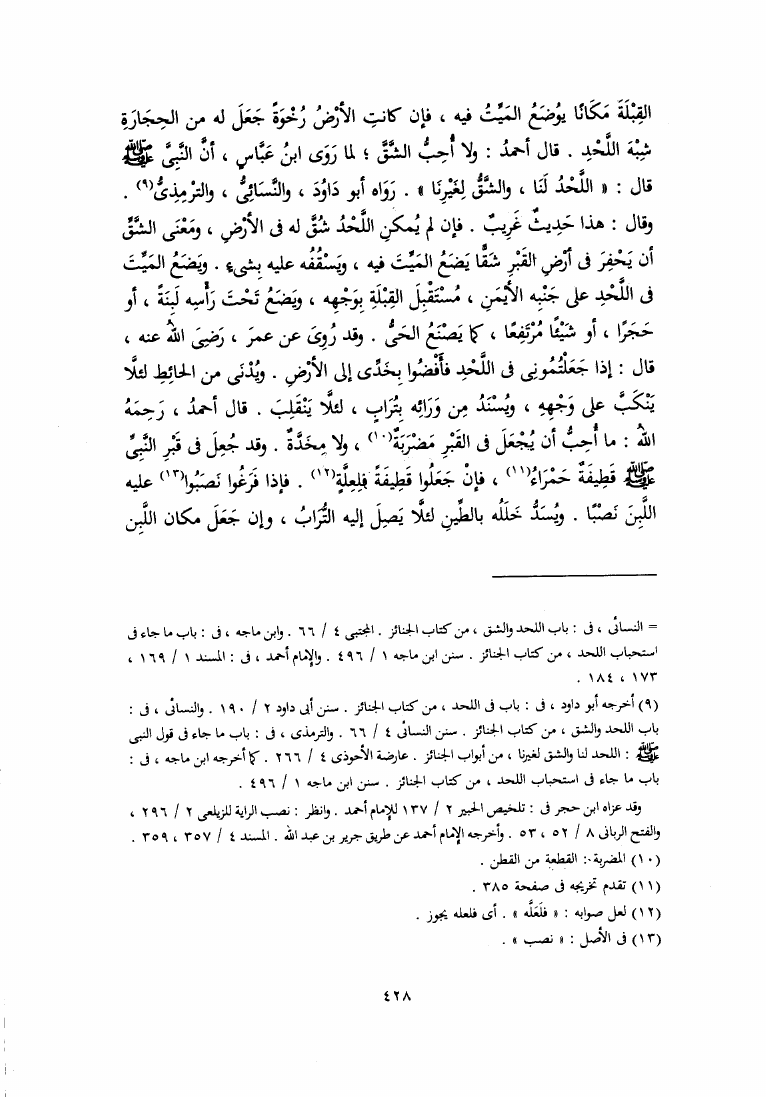 القِبْلَةَ مَكَانًا يُوضَعُ المَيِّتُ فيه ، فإن كانتِ الأرْضُ رُخْوَةً جَعَلَ له من الحِجَارَةِ
شِبْهَ اللَّحْدِ . قال أحمدُ : ولا أُحِبُّ الشَّقَّ ؛ لما رَوَى ابنُ عَبَّاسٍ ، أنَّ النَّبِىَّ ﷺ
قال : « اللَّحْدُ لَنَا ، والشَّقُّ لِغَيْرِنَا » . رَوَاه أبو دَاوُدَ ، والنَّسَائِىُّ ، والتِّرْمِذِىُّ(٩) .
وقال : هذا حَدِيثٌ غَرِيبٌ . فإن لم يُمكنِ اللَّحْدُ شُقَّ له فى الأرْضِ ، ومَعْنَى الشَّقِّ
أن يَحْفِرَ فى أرْضِ القَبْرِ شَقًّا يَضَعُ المَيِّتَ فيه ، ويَسْقُفُه عليه بشىءٍ . ويَضَعُ المَيِّتَ
فى اللَّحْدِ على جَنْبِه الأيْمَنِ ، مُسْتَقْبِلَ القِبْلَةِ بوَجْهِه ، ويَضَعُ تَحْتَ رَأْسِه لَبِنَةً ، أو
حَجَرًا ، أو شَيْئًا مُرْتَفِعًا ، كما يَصْنَعُ الحَىُّ . وقد رُوِىَ عن عمرَ ، رَضِىَ اللهُ عنه ،
قال : إذا جَعَلْتُمُونِى فى اللَّحْدِ فأَفْضُوا بِخَدِّى إلى الأرْضِ . ويُدْنَى من الحائِطِ لئلَّا
يَنْكَبَّ على وَجْهِهِ ، ويُسْنَدُ مِن وَرَائِه بِتُرَابٍ ، لئلَّا يَنْقَلِبَ . قال أحمدُ ، رَحِمَهُ
اللهُ : ما أُحِبُّ أن يُجْعَلَ فى القَبْرِ مَضْرَبَةٌ(١٠) ، ولا مِخَدَّةٌ . وقد جُعِلَ فى قَبْرِ النَّبِىِّ
ﷺ قَطِيفَةٌ حَمْرَاءُ(١١) ، فإنْ جَعَلُوا قَطِيفَةً فلِعِلَّةٍ(١٢) . فإذا فَرَغُوا نَصَبُوا(١٣) عليه
اللَّبِنَ نَصْبًا . ويُسَدُّ خَلَلُه بالطِّينِ لئلَّا يَصِلَ إليه التُّرَابُ ، وإن جَعَلَ مكان اللَّبِنِ
= النسائى ، فى : باب اللحد والشق ، من كتاب الجنائز . المجتبى ٤ / ٦٦ . وابن ماجه ، فى : باب ما جاء فى
استحباب اللحد ، من كتاب الجنائز . سنن ابن ماجه ١ / ٤٩٦ . والإمام أحمد ، فى : المسند ١ / ١٦٩ ،
١٧٣ ، ١٨٤ .
(٩) أخرجه أبو داود ، فى : باب فى اللحد ، من كتاب الجنائز . سنن أبى داود ٢ / ١٩٠ . والنسائى ، فى :
باب اللحد والشق ، من كتاب الجنائز . سنن النسائى ٤ / ٦٦ . والترمذى ، فى : باب ما جاء فى قول النبى
ﷺ : اللحد لنا والشق لغيرنا ، من أبواب الجنائز . عارضة الأحوذى ٤ / ٢٦٦ . كما أخرجه ابن ماجه ، فى :
باب ما جاء فى استحباب اللحد ، من كتاب الجنائز . سنن ابن ماجه ١ / ٤٩٦ .
وقد عزاه ابن حجر فى : تلخيص الحبير ٢ / ١٣٧ للإمام أحمد . وانظر : نصب الراية للزيلعى ٢ / ٢٩٦ ،
والفتح الربانى ٨ / ٥٢ ، ٥٣ . وأخرجه الإمام أحمد عن طريق جرير بن عبد الله . المسند ٤ / ٣٥٧ ، ٣٥٩ .
(١٠) المضربة : القطعة من القطن .
(١١) تقدم تخريجه فى صفحة ٣٨٥ .
(١٢) لعل صوابه : « فلَعَلَّه » . أى فلعله يجوز .
(١٣) فى الأصل : « نصب » .
٤٢٨